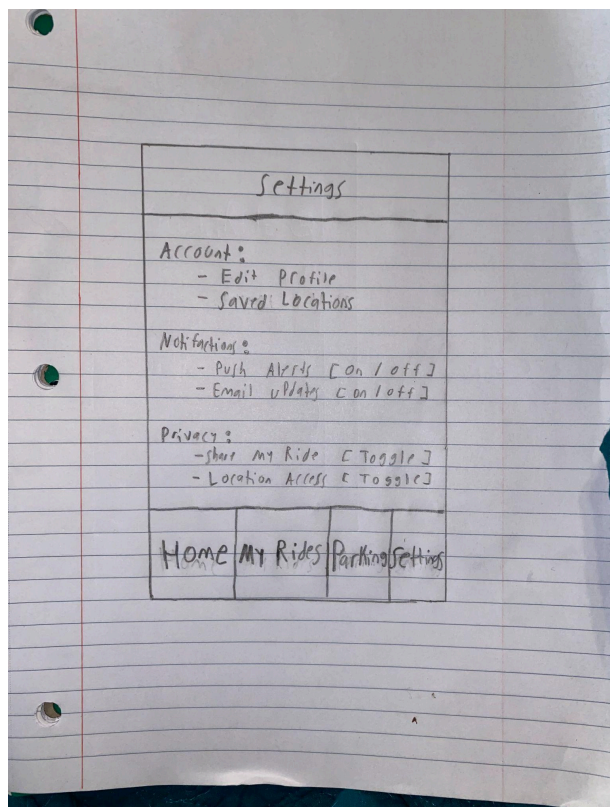 Settings
Account:
- Edit Profile
- Saved Locations
Notifactions:
- Push Alerts [on / off]
- Email updates [on / off]
Privacy:
- Share My Ride [Toggle]
- Location Access [Toggle]
Home My Rides Parking Settings